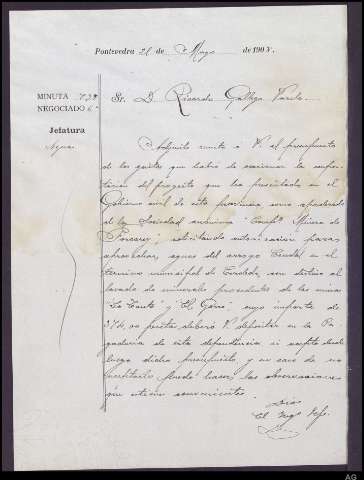 Pontevedra 21 de Mayo de 1903.
MINUTA 728
NEGOCIADO 6º
Jefatura
Aguas
Sr. D. Ricardo Gallego Pardo.
Adjunto remito á V. el presupuesto
de los gastos que habrá de ocasionar la confron-
tación del proyecto que ha presentado en el
Gobierno civil de esta provincia como apoderado
de la Sociedad anónima "Compª Minera de
solicitando autorización para
aprovechar aguas del arroyo en el
término municipal de con destino al
lavado de minerales procedentes de las minas
"La y "El cuyo importe de
374, pesetas deberá V. depositar en la Pa-
gaduría de esta dependencia si acepta desde
luego dicho presupuesto y en caso de no
aceptarlo puede hacer las observaciones
que estime convenientes.
Dios
El Ingº Jefe
AG